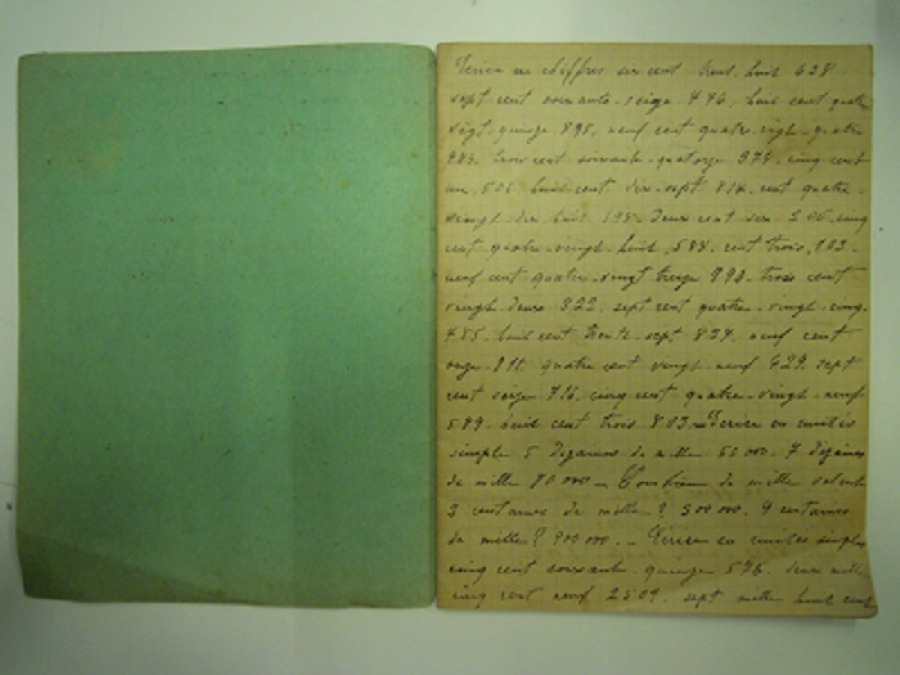 Ecrire en chiffres six cent trent. huit 638
sept cent soixante. seize 776, huit cent quatre
vingt. quinze 895, neuf cent quatre. vingt. quatre
984. trois cent soixante. quatorze 374. cinq cent
un. 501 huit cent dix. sept 817. cent quatre.
vingt. dix huit 198. deux cent six 206. cinq
cent. quatre. vingt. huit, 588. cent trois, 103.
neuf cent quatre. vingt treize 993. trois cent
vingt. deux 322. sept cent quatre. vingt. cinq.
785. huit cent trente. sept 837. neuf cent
onze. 911 quatre cent vingt. neuf 429. sept
cent seize 716. cinq cent quatre. vingt. neuf
589. huit cent trois 803. Ecrire en unités
simple 5 dizaines de mille 50 000. 7 dizaines
de mille 70 000 _ Combien de mille valent
3 centaines de mille ? 300 000. 9 centaines
de mille ? 900 000. _ Ecrire en unités simples
cinq cent soixante. quinze 575. deux mille
cinq cent neuf 2509. sept mille huit cent